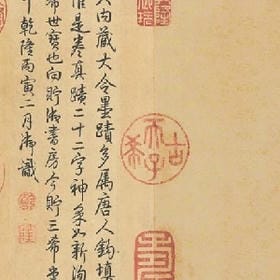 內藏大令墨蹟多屬唐人鈎填
惟是卷真蹟二十二字神采如新洵
希世寶也向貯御書房今貯三希堂
中乾隆丙寅二月御識
乾
隆
古希天子